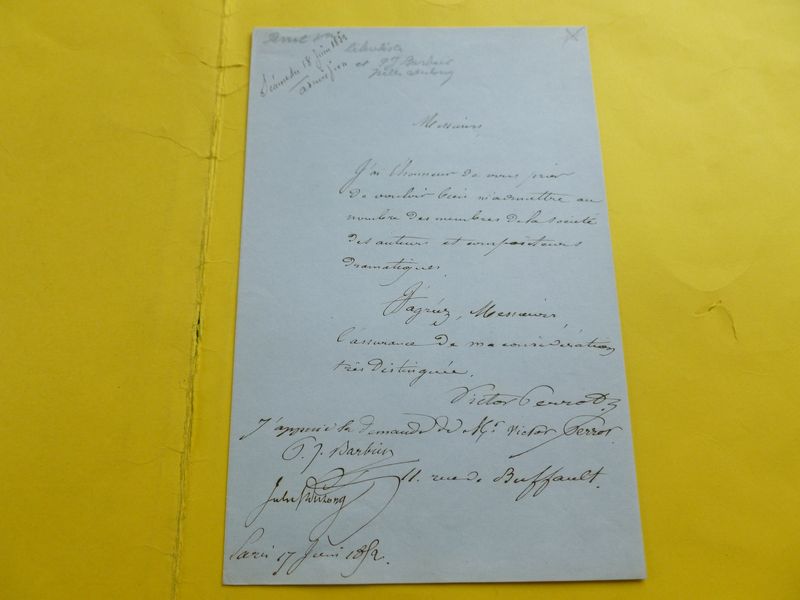 Perrot Vor
Séance du 18 Juin 1852
admission
et P J Barbier
Messieurs,
J'ai l'honneur de vous prier
de vouloir bien m'admettre au
nombre des membres de la société
des auteurs et compositeurs
dramatiques.
J'agréez, Messieurs,
l'assurance de ma considération
très distinguée.
Victor Perrot
J'appuie la demande de Mr. Victor Perrot.
P. J. Barbier
11. rue de Buffault.
Jules
Paris 17 Juin 1852.